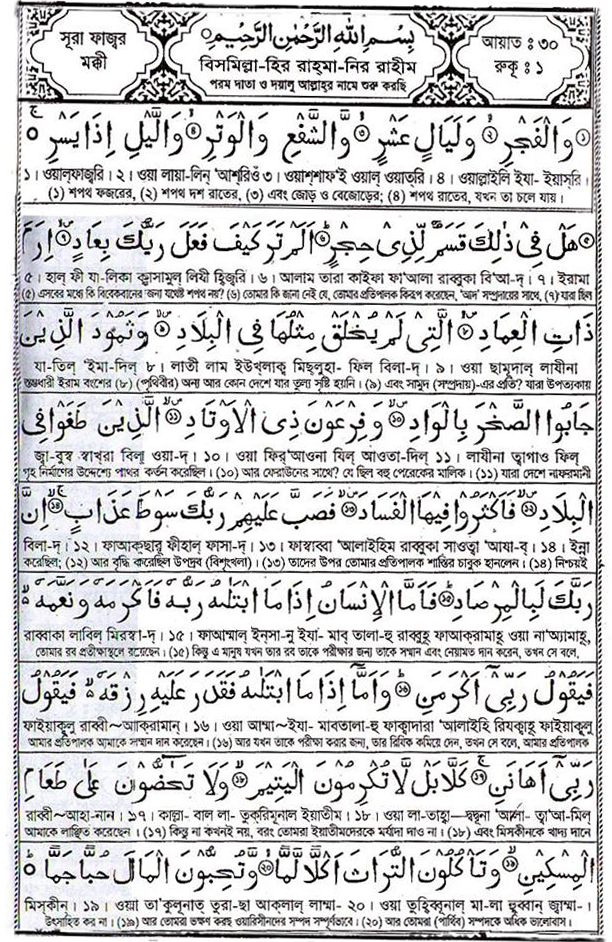 সূরা ফাজ্বর
মক্কী
بِسْمِ اللّٰهِ الرَّحْمٰنِ الرَّحِيْمِ
বিসমিল্লা-হির রাহ্‌মা-নির রাহীম
পরম দাতা ও দয়ালু আল্লাহ্‌র নামে শুরু করছি
আয়াত : ৩০
রুকূ : ১
وَالْفَجْرِ ۙ وَلَيَالٍ عَشْرٍ ۙ وَّالشَّفْعِ وَالْوَتْرِ ۙ وَالَّيْلِ اِذَا يَسْرِ ۚ
১। ওয়াল্‌ফাজ্বরি। ২। ওয়া লায়া-লিন্ 'আশ্‌রিওঁ ৩। ওয়াশ্‌শাফ্‌'ই ওয়াল্ ওয়াত্‌রি। ৪। ওয়াল্লাইলি ইযা- ইয়াস্‌রি।
(১) শপথ ফজরের, (২) শপথ দশ রাতের, (৩) এবং জোড় ও বেজোড়ের; (৪) শপথ রাতের, যখন তা চলে যায়।
هَلْ فِيْ ذٰلِكَ قَسَمٌ لِّذِيْ حِجْرٍ ؕ اَلَمْ تَرَ كَيْفَ فَعَلَ رَبُّكَ بِعَادٍ ۙ اِرَمَ
৫। হাল্ ফী যা-লিকা ক্বাসামুল্ লিযী হ্বিজ্বরি। ৬। আলাম্ তারা কাইফা ফা'আলা রাব্বুকা বি'আ-দ্। ৭। ইরামা
(৫) এসবের মধ্যে কি বিবেকবানের জন্য যথেষ্ট শপথ নয়? (৬) তোমার কি জানা নেই যে, তোমার প্রতিপালক কিরূপ করেছেন, 'আদ' সম্প্রদায়ের সাথে, (৭) যারা ছিল
ذَاتِ الْعِمَادِ ۙ الَّتِيْ لَمْ يُخْلَقْ مِثْلُهَا فِي الْبِلَادِ ۙ وَثَمُوْدَ الَّذِيْنَ
যা-তিল্ 'ইমা-দিল্ ৮। লাতী লাম্ ইউখ্‌লাক্ব্ মিছ্‌লুহা- ফিল বিলা-দ্। ৯। ওয়া ছামূদাল্ লাযীনা
স্তম্ভধারী ইরাম বংশের (৮) (পৃথিবীর) অন্য আর কোন দেশে যার তুল্য সৃষ্টি হয়নি। (৯) এবং সামুদ (সম্প্রদায়)-এর প্রতি? যারা উপত্যকায়
جَابُوا الصَّخْرَ بِالْوَادِ ۙ وَفِرْعَوْنَ ذِي الْاَوْتَادِ ۙ الَّذِيْنَ طَغَوْا فِي
জ্বা-বুছ্ স্বাখ্‌রা বিল্ ওয়া-দ্। ১০। ওয়া ফির্‌'আওনা যিল্ আওতা-দিল্ ১১। লাযীনা ত্বাগাও ফিল্
গৃহ নির্মাণের উদ্দেশ্যে পাথর কর্তন করেছিল। (১০) আর ফেরাউনের সাথে? যে ছিল বহু পেরেকের মালিক। (১১) যারা দেশে নাফরমানী
الْبِلَادِ ۙ فَاَكْثَرُوْا فِيْهَا الْفَسَادَ ۙ فَصَبَّ عَلَيْهِمْ رَبُّكَ سَوْطَ عَذَابٍ ۚ اِنَّ
বিলা-দ্। ১২। ফাআক্‌ছারূ ফীহাল্ ফাসা-দ্। ১৩। ফাস্বাব্বা 'আলাইহিম রাব্বুকা সাওত্বা 'আযা-ব্। ১৪। ইন্না
করেছিল; (১২) আর বৃদ্ধি করেছিল উপদ্রব (বিশৃংখলা)। (১৩) তাদের উপর তোমার প্রতিপালক শাস্তির চাবুক হানলেন। (১৪) নিশ্চয়ই
رَبَّكَ لَبِالْمِرْصَادِ ؕ فَاَمَّا الْاِنْسَانُ اِذَا مَا ابْتَلٰىهُ رَبُّهٗ فَاَكْرَمَهٗ وَنَعَّمَهٗ ۙ
রাব্বাকা লাবিল্ মির্‌স্বা-দ্। ১৫। ফাআম্মাল্ ইন্‌সা-নু ইযা- মাব্ তালা-হু রাব্বুহূ ফাআক্‌রামাহূ ওয়া না'আ্যামাহূ,
তোমার রব প্রতীক্ষাস্থলে রয়েছেন। (১৫) কিন্তু এ মানুষ যখন তার রব তাকে পরীক্ষার জন্য তাকে সম্মান এবং নেয়ামত দান করেন, তখন সে বলে,
فَيَقُوْلُ رَبِّيْۤ اَكْرَمَنِ ؕ وَاَمَّاۤ اِذَا مَا ابْتَلٰىهُ فَقَدَرَ عَلَيْهِ رِزْقَهٗ ۙ فَيَقُوْلُ
ফাইয়াক্বূলু রাব্বী~আক্‌রামান্। ১৬। ওয়া আম্মা~ইযা- মাবতালা-হু ফাক্বাদারা 'আলাইহি রিয্‌ক্বাহূ ফাইয়াক্বূলু
আমার প্রতিপালক আমাকে সম্মান দান করেছেন। (১৬) আর যখন তাকে পরীক্ষা করার জন্য, তার রিযিক কমিয়ে দেন, তখন সে বলে, আমার প্রতিপালক
رَبِّيْۤ اَهَانَنِ ۚ كَلَّا بَلْ لَّا تُكْرِمُوْنَ الْيَتِيْمَ ۙ وَلَا تَحٰٓضُّوْنَ عَلٰى طَعَامِ
রাব্বী~আহা-নান। ১৭। কাল্লা- বাল্ লা- তুক্‌রিমূনাল্ ইয়াতীম। ১৮। ওয়া লা-তাহ্বা—দ্বদ্বূনা 'আলা- ত্বা'আ-মিল্
আমাকে লাঞ্ছিত করেছেন। (১৭) কিন্তু না কখনই নয়, বরং তোমরা ইয়াতীমদেরকে মর্যাদা দাও না। (১৮) এবং মিসকীনকে খাদ্য দানে
الْمِسْكِيْنِ ۙ وَتَاْكُلُوْنَ التُّرَاثَ اَكْلًا لَّمًّا ۙ وَّتُحِبُّوْنَ الْمَالَ حُبًّا جَمًّا ؕ
মিস্‌কীন। ১৯। ওয়া তা'কুলূনাত্ তুরা-ছা আক্‌লাল্ লাম্মা- ২০। ওয়া তুহ্বিব্বূনাল্ মা-লা হুব্বান্ জ্বাম্মা-।
উৎসাহিত কর না। (১৯) আর তোমরা ভক্ষণ করছ ওয়ারিসীনদের সম্পদ সম্পূর্ণভাবে। (২০) আর তোমরা (পার্থিব) সম্পদকে অধিক ভালোবাস।